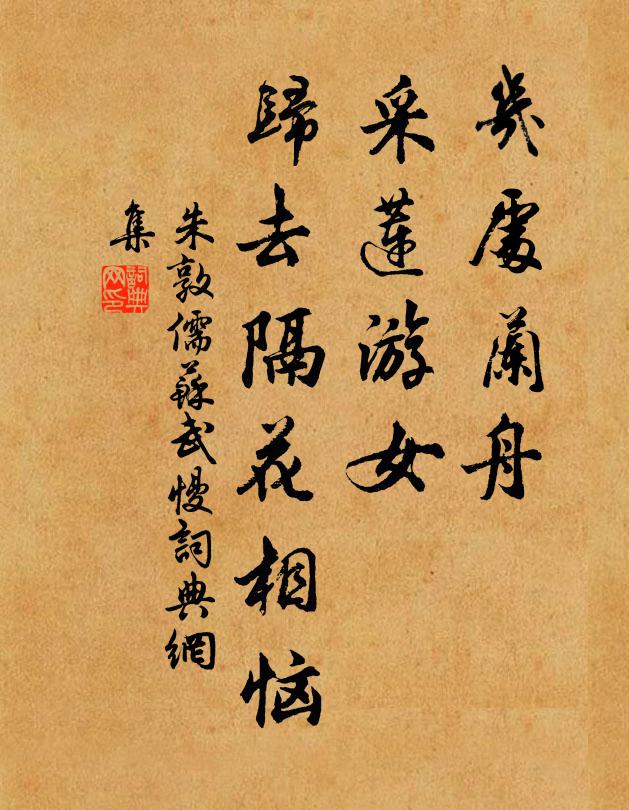 幾處蘭舟
采蓮游女
歸去隔花相惱
朱敦儒蘇武慢詞典網
集
詞典網印